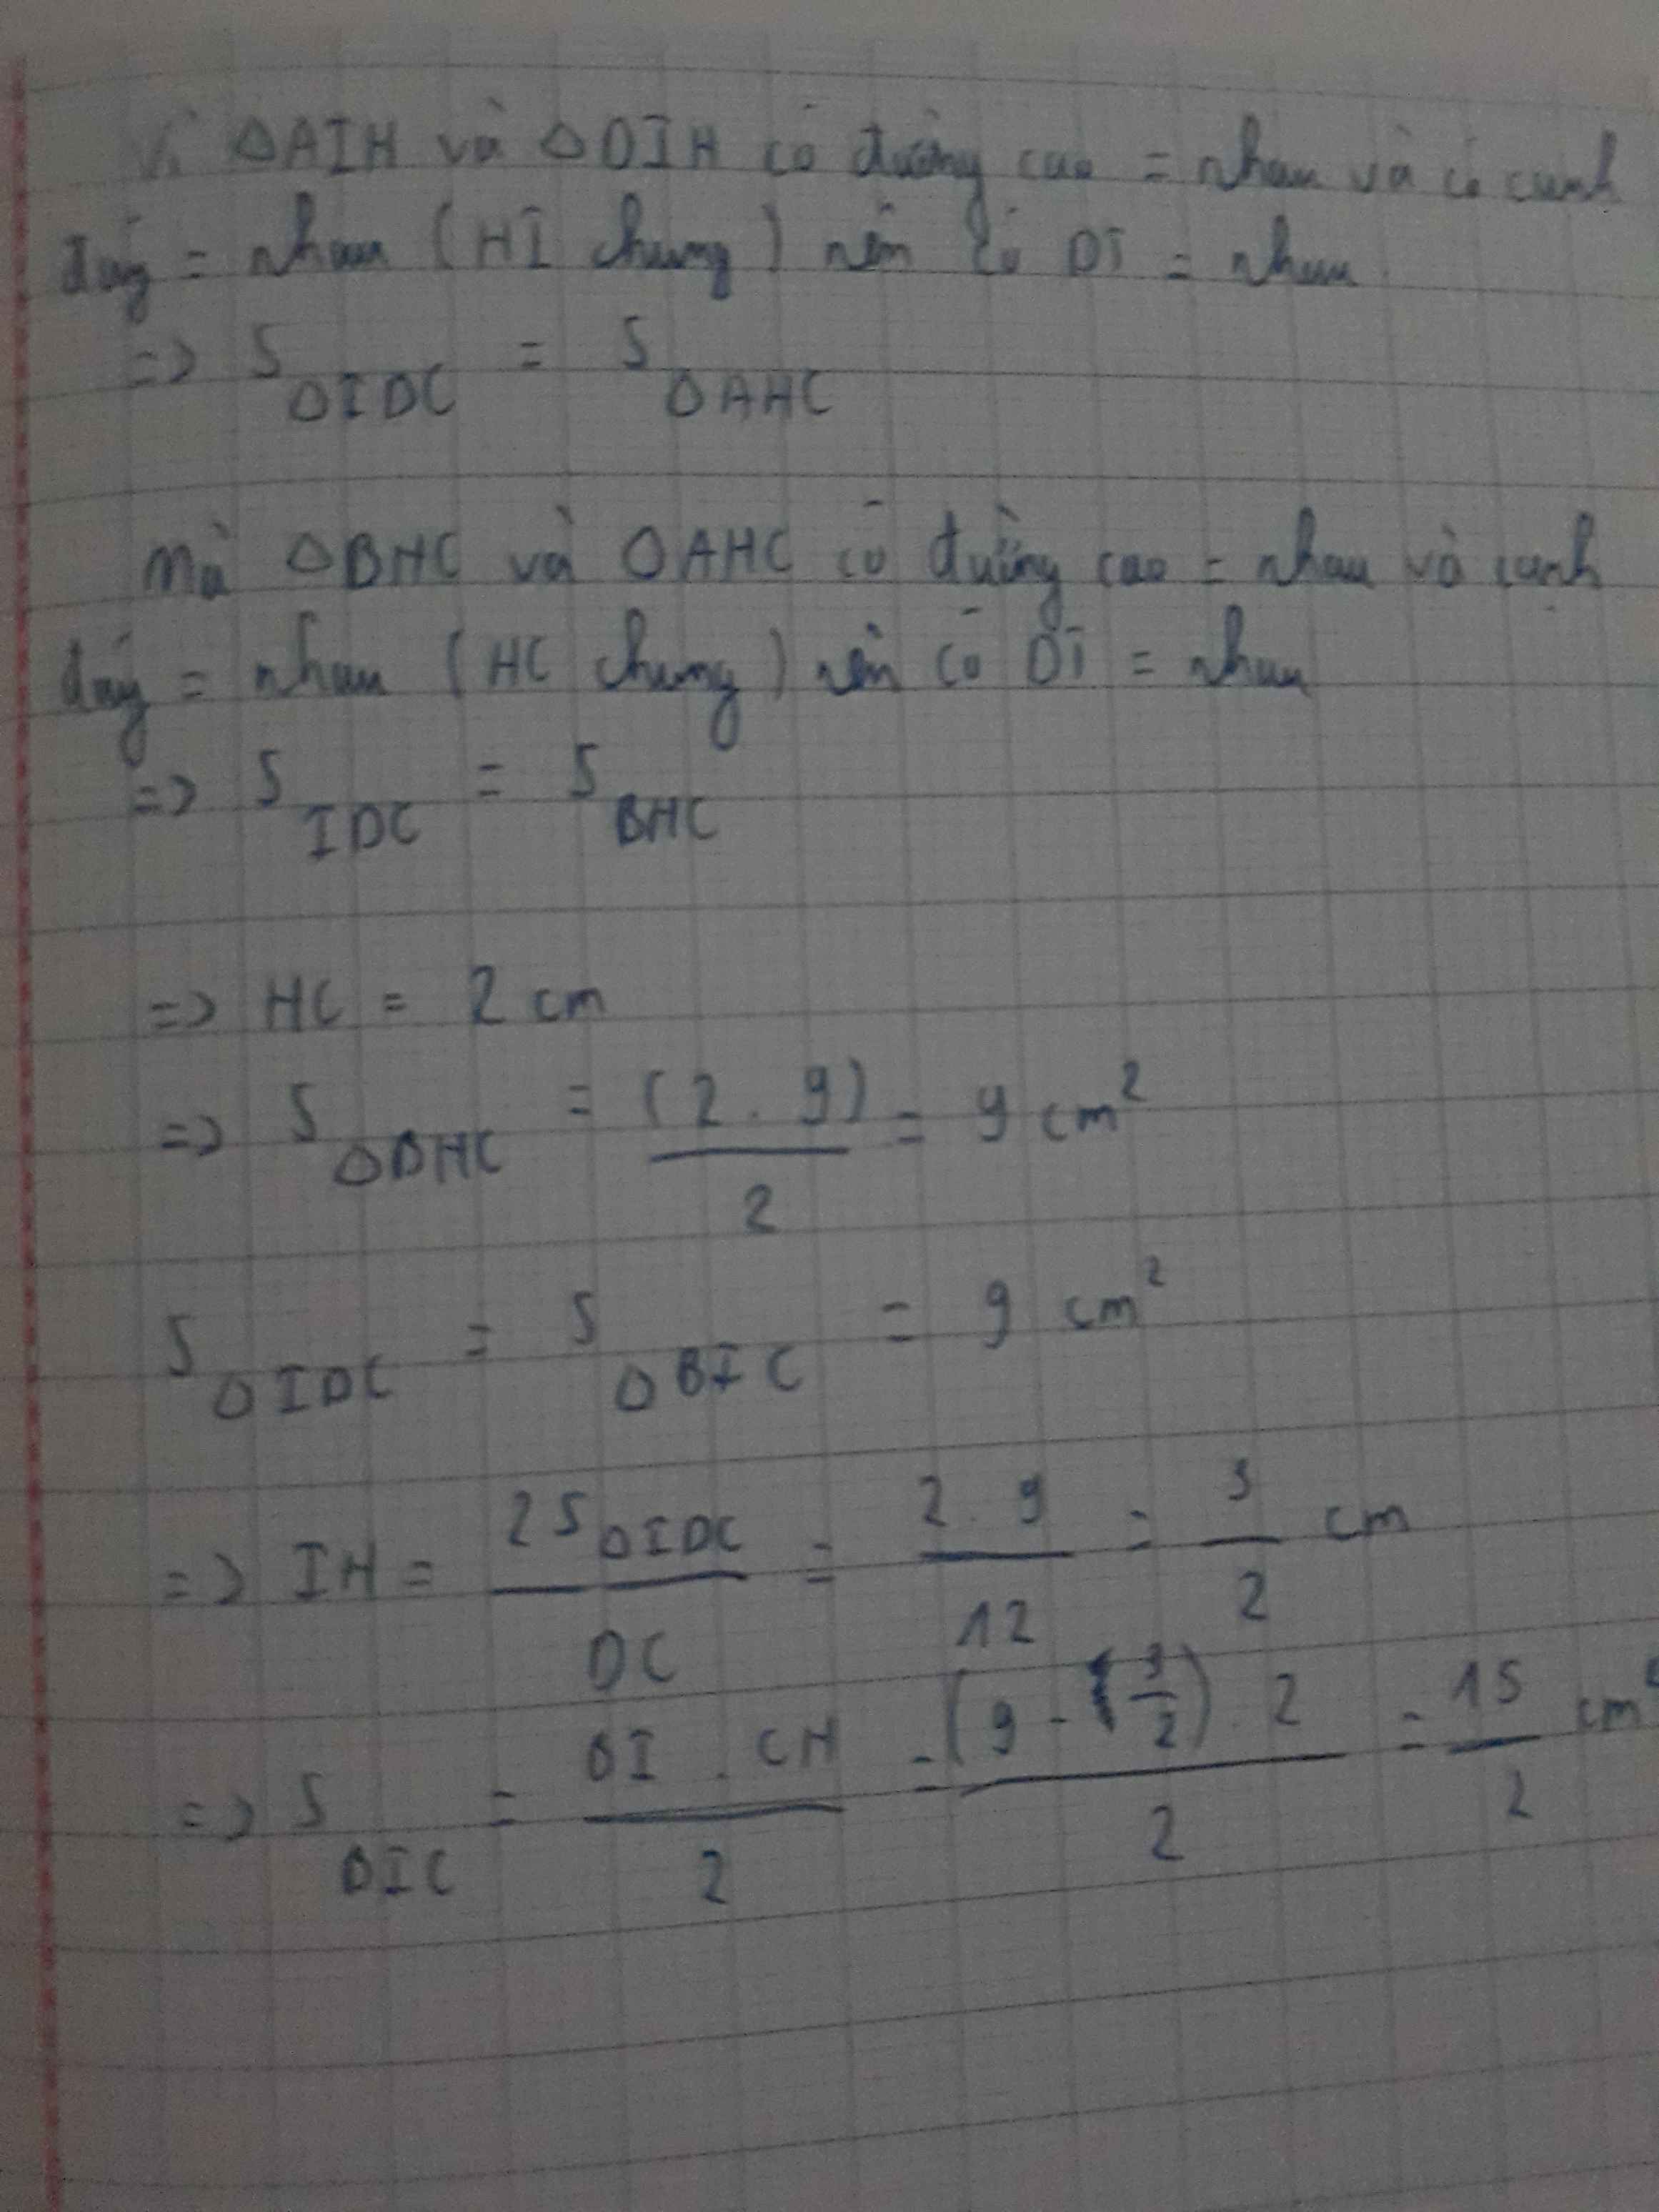 Vì ΔAIH và ΔDIH có đường cao = nhau và có cạnh
đáy = nhau (HI chung) nên có DT = nhau
=> S ΔIDC = S ΔAHC
Mà ΔBHC và ΔAHC có đường cao = nhau và cạnh
đáy = nhau (HC chung) nên có DT = nhau
=> S IDC = S BHC
=> HC = 2 cm
=> S ΔBHC = (2 . 9) / 2 = 9 cm²
S ΔIDC = S ΔBIC = 9 cm²
=> IH = 2S ΔIDC / DC = 2 . 9 / 12 = 3 / 2 cm
=> S BIC = BI . CH / 2 = (9 - (3/2) . 2 / 2 = 15 / 2 cm²